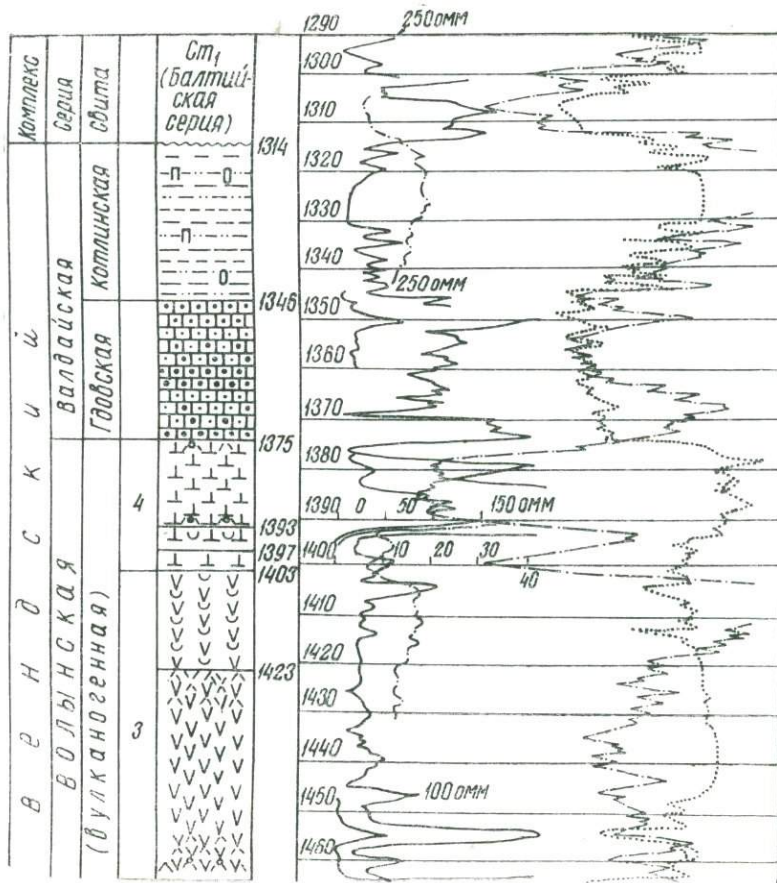 Комплекс
Серия
Свита
Cm₁
(Балтий-
ская
серия)
Вендский
Валдайская
Волынская
(вулканогенная)
Котлинская
Гдовская
4
3
П
О
П
О
1314
1346
1375
1393
1397
1403
1423
1290
250омм
1300
1310
1320
1330
1340
250омм
1350
1360
1370
1380
1390
0
50
150омм
1400
10
20
30
40
1410
1420
1430
1440
1450
100омм
1460